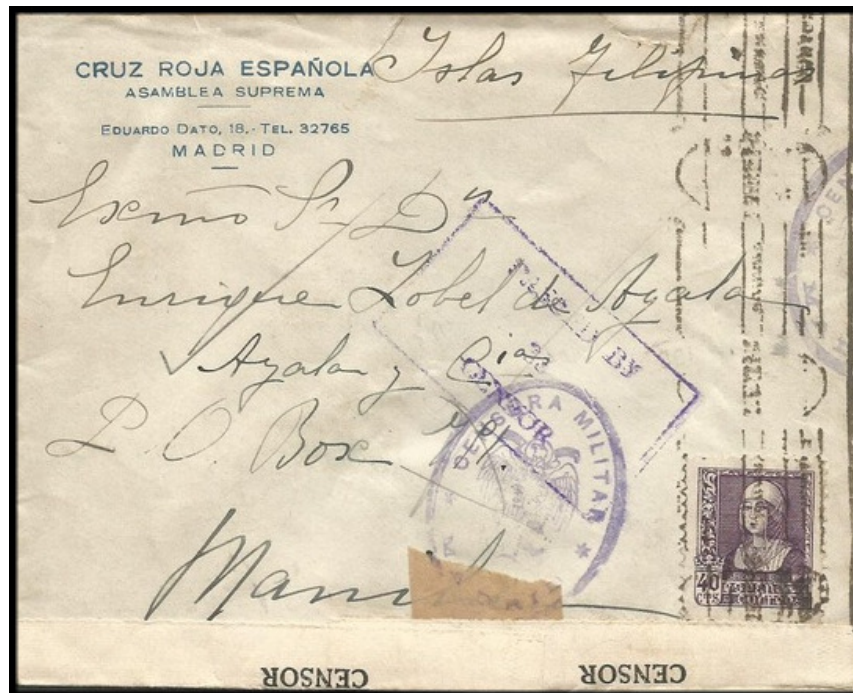 CRUZ ROJA ESPAÑOLA
ASAMBLEA SUPREMA
EDUARDO DATO, 18.- TEL. 32765
MADRID
Islas Filipinas
Excmo Sr Dn
Enrique Zobel de Ayala
Ayala y Cias
P. O. Box
Manila
PASSED BY
CENSOR
CENSURA MILITAR
40
CTS
CENSOR
CENSOR